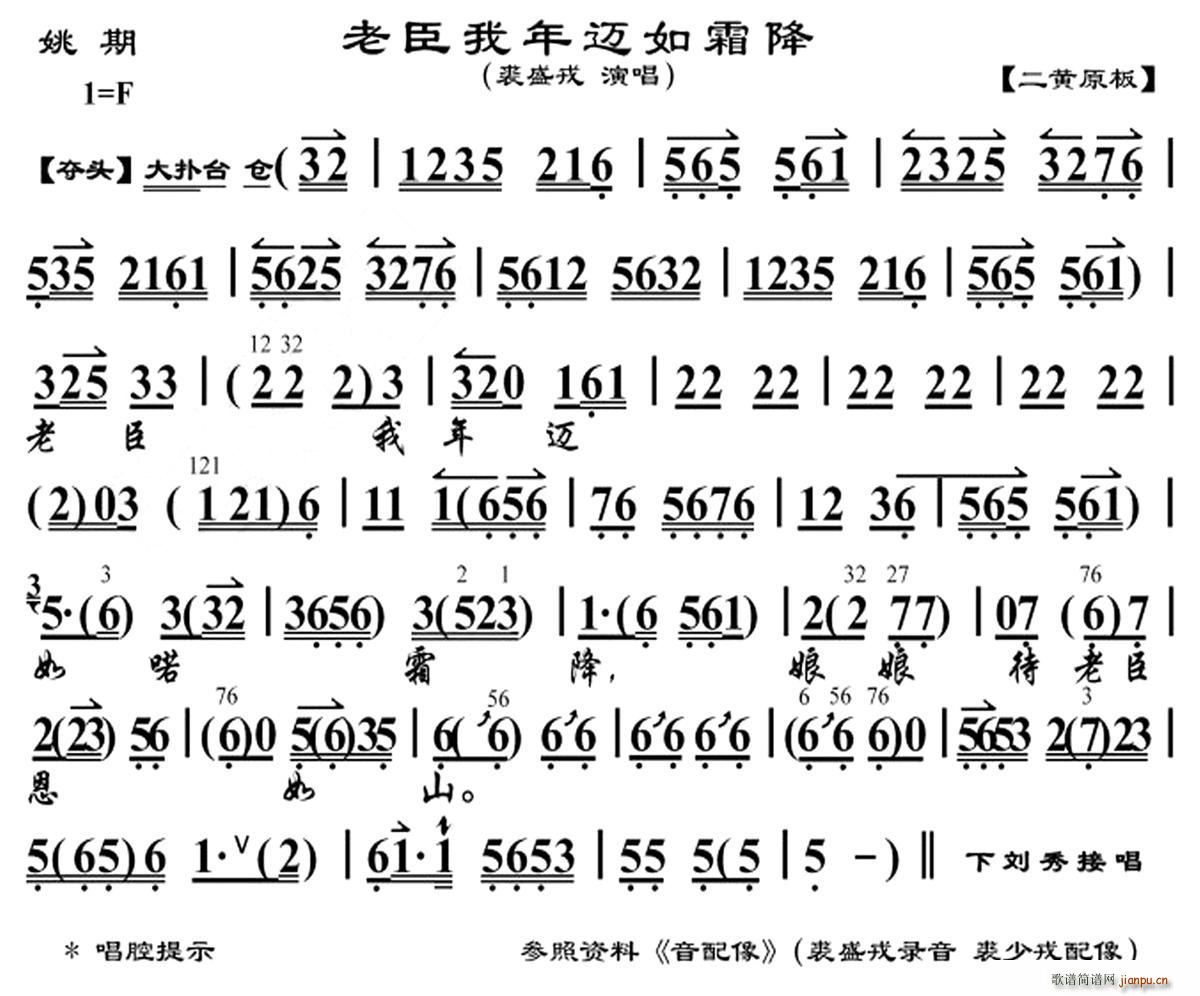 姚 期
老臣我年迈如霜降
(裘盛戎 演唱)
1=F
【二黄原板】
【夺头】大扑台 仓(32 | 1235 216 | 565 561 | 2325 3276 |
535 2161 | 5625 3276 | 5612 5632 | 1235 216 | 565 561) |
12 32
325 33 | (22 2)3 | 320 161 | 22 22 | 22 22 | 22 22 |
老 臣 我 年 迈
121
(2)03 (121)6 | 11 1(656 | 76 5676 | 12 36 | 565 561) |
3 3 2 1 32 27 76
5·(6) 3(32 | 3656) 3(523) | 1·(6 561) | 2(2 77) | 07 (6)7 |
如 喏 霜 降, 娘 娘 待 老 臣
76 56 6 56 76 3
2(23) 56 | (6)0 5(6)35 | 6(6) 66 | 66 66 | (66 6)0 | 5653 2(7)23 |
恩 如 山。
5(65)6 1·∨(2) | 61·1 5653 | 55 5(5 | 5 －) ‖ 下刘秀接唱
* 唱腔提示
参照资料《音配像》(裘盛戎录音 裘少戎配像)
歌谱简谱网 jianpu.cn